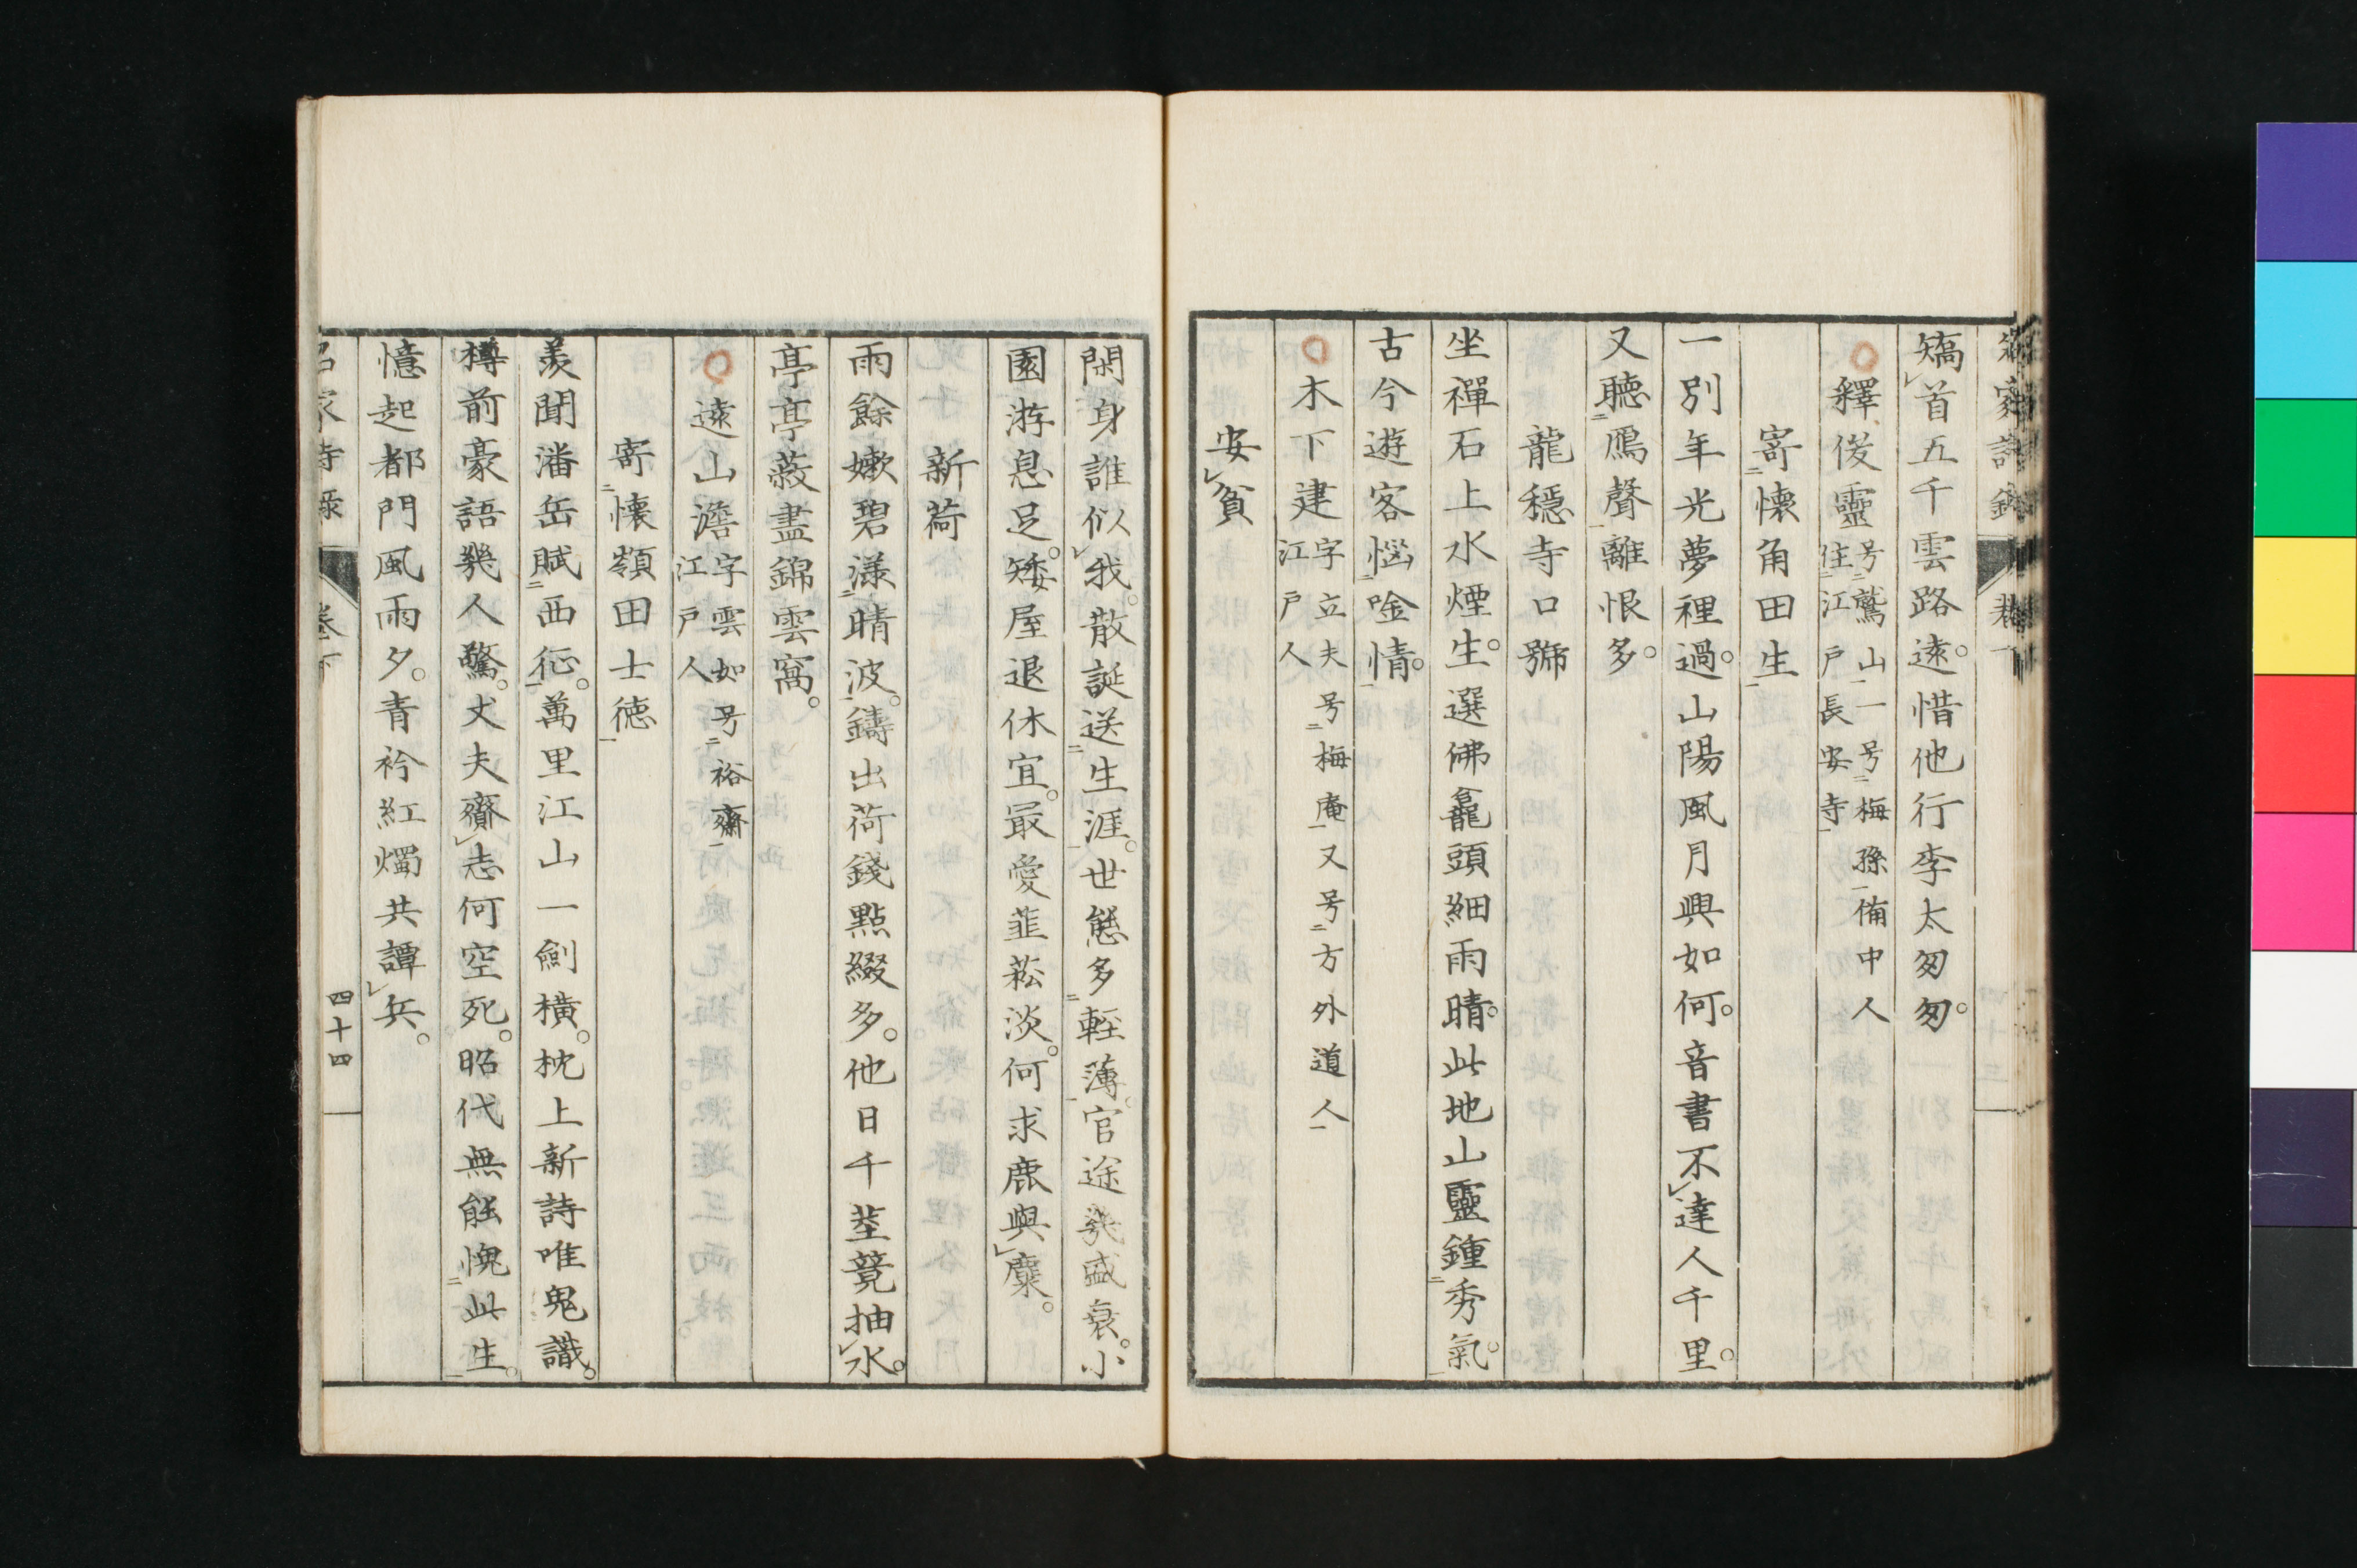 矯首五千雲路遠。惜他行李太匆匆。
釋俊靈
号鷲山一号梅孫備中人
住江戸長安寺
寄懷角田生
一別年光夢裡過。山陽風月興如何。音書不達人千里。
又聽鴈聲離恨多。
龍穏寺口號
坐禪石上水煙生。選佛龕頭細雨晴。此地山靈鍾秀氣。
古今遊客惱唫情。
木下建
字立夫号梅庵又号方外道人
江戸人
安貧
閑身誰似我。散誕送生涯。世態多輕薄。官途幾盛衰。小
園游息足。矮屋退休宜。最愛韮菘淡。何求鹿與麋。
新荷
雨餘嫩碧漾晴波。鑄出荷錢點綴多。他日千莖竟抽水。
亭亭蔽盡錦雲窩。
遠山澹
字雲如号裕齋
江戸人
寄懷嶺田士徳
羨聞潘岳賦西征。萬里江山一劍横。枕上新詩唯鬼識。
樽前豪語幾人驚。丈夫齎志何空死。昭代無能愧此生。
憶起都門風雨夕。青衿紅燭共譚兵。
名家詩録 卷下 四十四